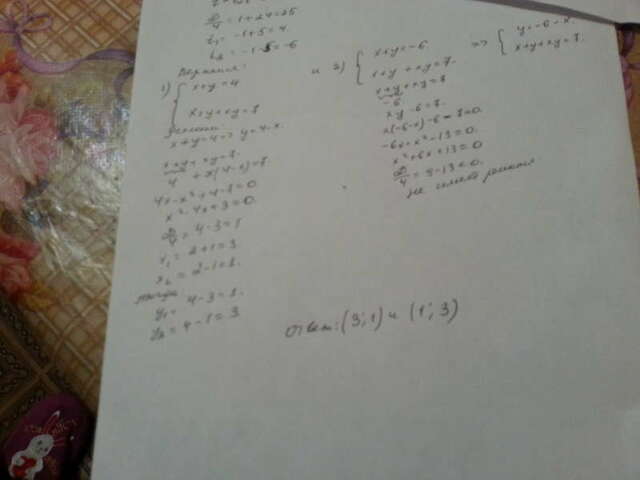 D/4 = 1+24=25
t₁ = -1+5=4.
t₂ = -1-5=-6
1) { x+y=4
x+y+xy=7
x+y=4 => y=4-x.
x+y+xy=7.
4 + x(4-x)=7.
4x-x²+4-7=0.
x²-4x+3=0.
D/4 = 4-3=1
x₁ = 2+1=3
x₂ = 2-1=1.
y₁ = 4-3=1.
y₂ = 4-1=3
и 2) { x+y=-6
x+y+xy=7.
=> { y=-6-x.
x+y+xy=7.
x+y+xy=7
-6
xy-6=7.
x(-6-x)-6-7=0.
-6x-x²-13=0.
x²+6x+13=0
D/4 = 9-13<0.
не имеет решения
Ответ: (3; 1) и (1; 3)